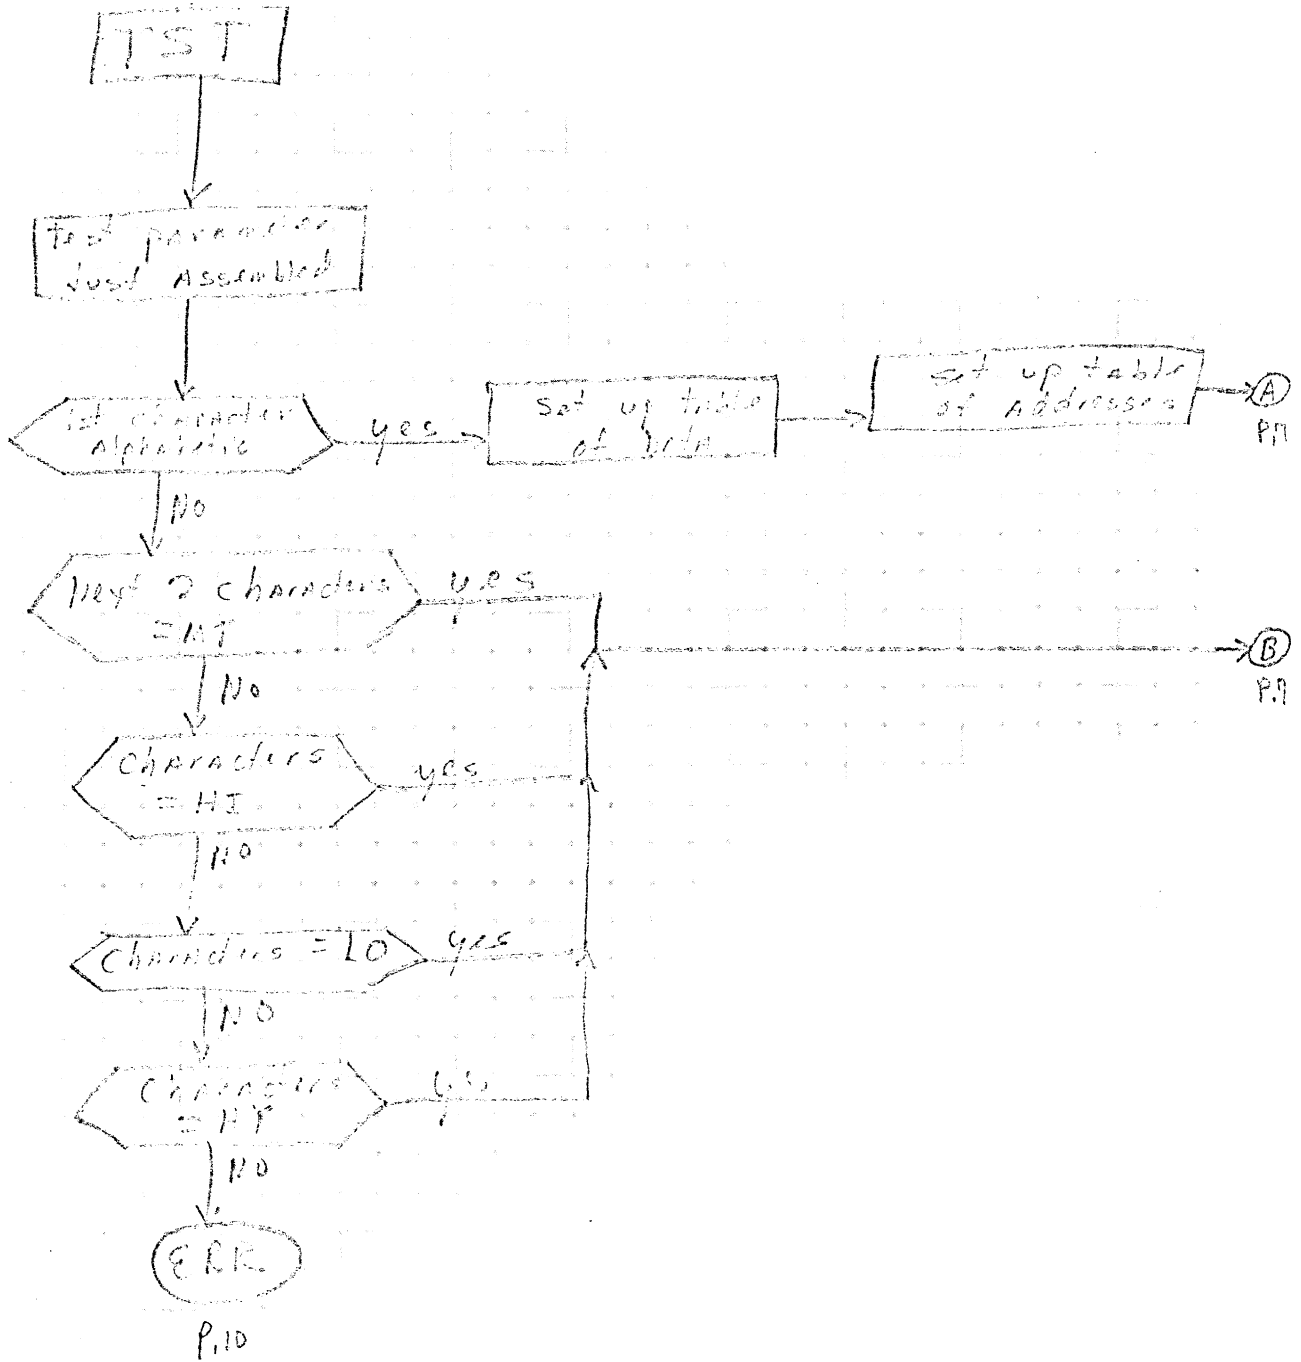 TST
Test parameter
Just Assembled
1st character
Alphabetic
yes
Set up table
of DATA
Set up table
of Addresses
A
P.7
No
Next 2 characters
=MT
yes
B
P.7
No
Characters
= HI
yes
NO
Characters = LO
yes
NO
Characters
= HY
yes
NO
ERR
P.10